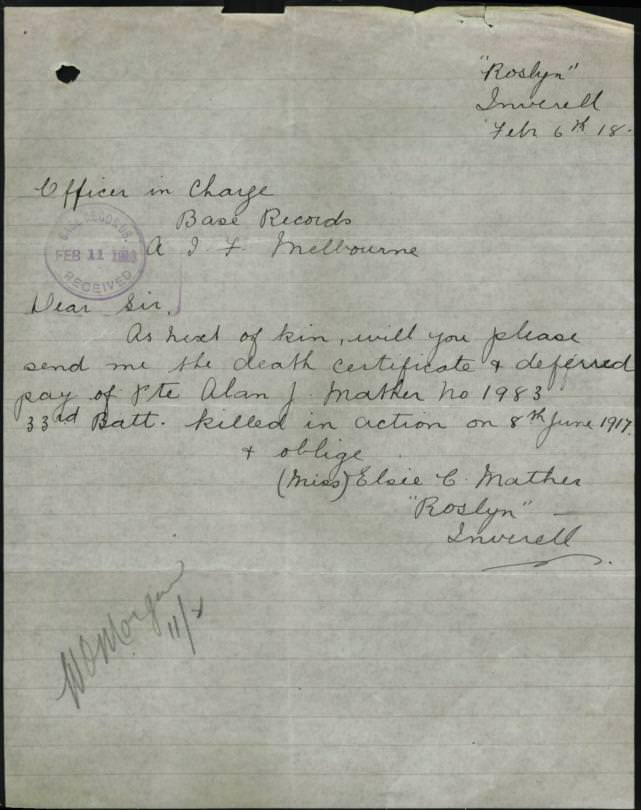 "Roslyn"
Inverell
Feb 6th 18.
Officer in Charge
Base Records
A I F Melbourne
BASE RECORDS.
FEB 11 1918
RECEIVED
Dear Sir,
As next of kin, will you please
send me the death certificate & deferred
pay of Pte Alan J. Mather No 1983
33rd Batt. killed in action on 8th June 1917.
& oblige
(Miss) Elsie C. Mather
"Roslyn" —
Inverell
Morgan